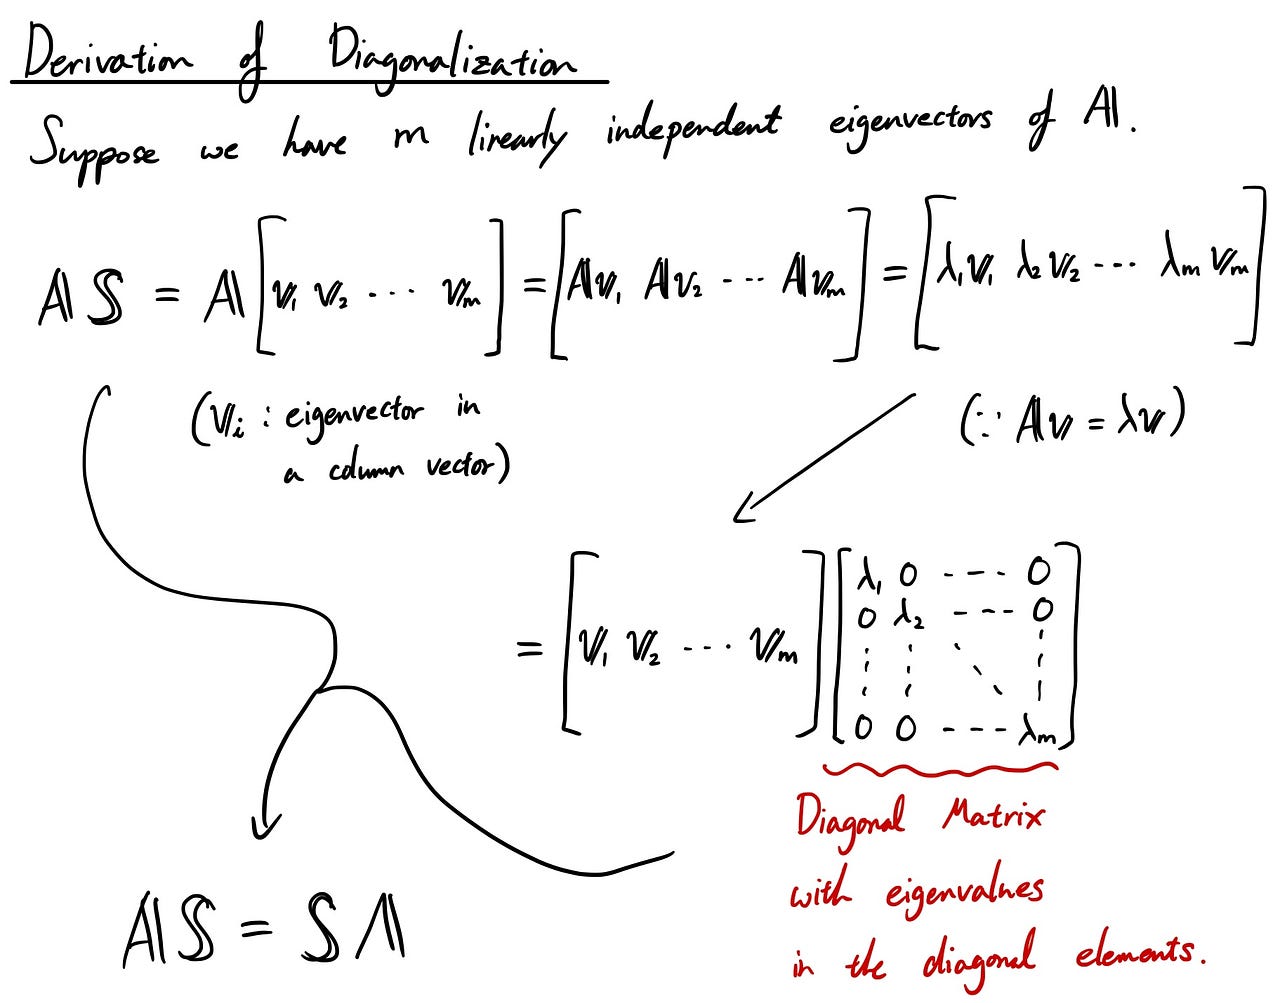 Derivation of Diagonalization
Suppose we have m linearly independent eigenvectors of A.
AS = A[v₁ v₂ ··· vₘ] = [Av₁ Av₂ ··· Avₘ] = [λ₁v₁ λ₂v₂ ··· λₘvₘ]
(vᵢ : eigenvector in
a column vector)
(∵ Av = λv)
= [v₁ v₂ ··· vₘ]
λ₁ 0 --- 0
0 λ₂ --- 0
0 0 --- λₘ
Diagonal Matrix
with eigenvalues
in the diagonal elements.
AS = SΛ